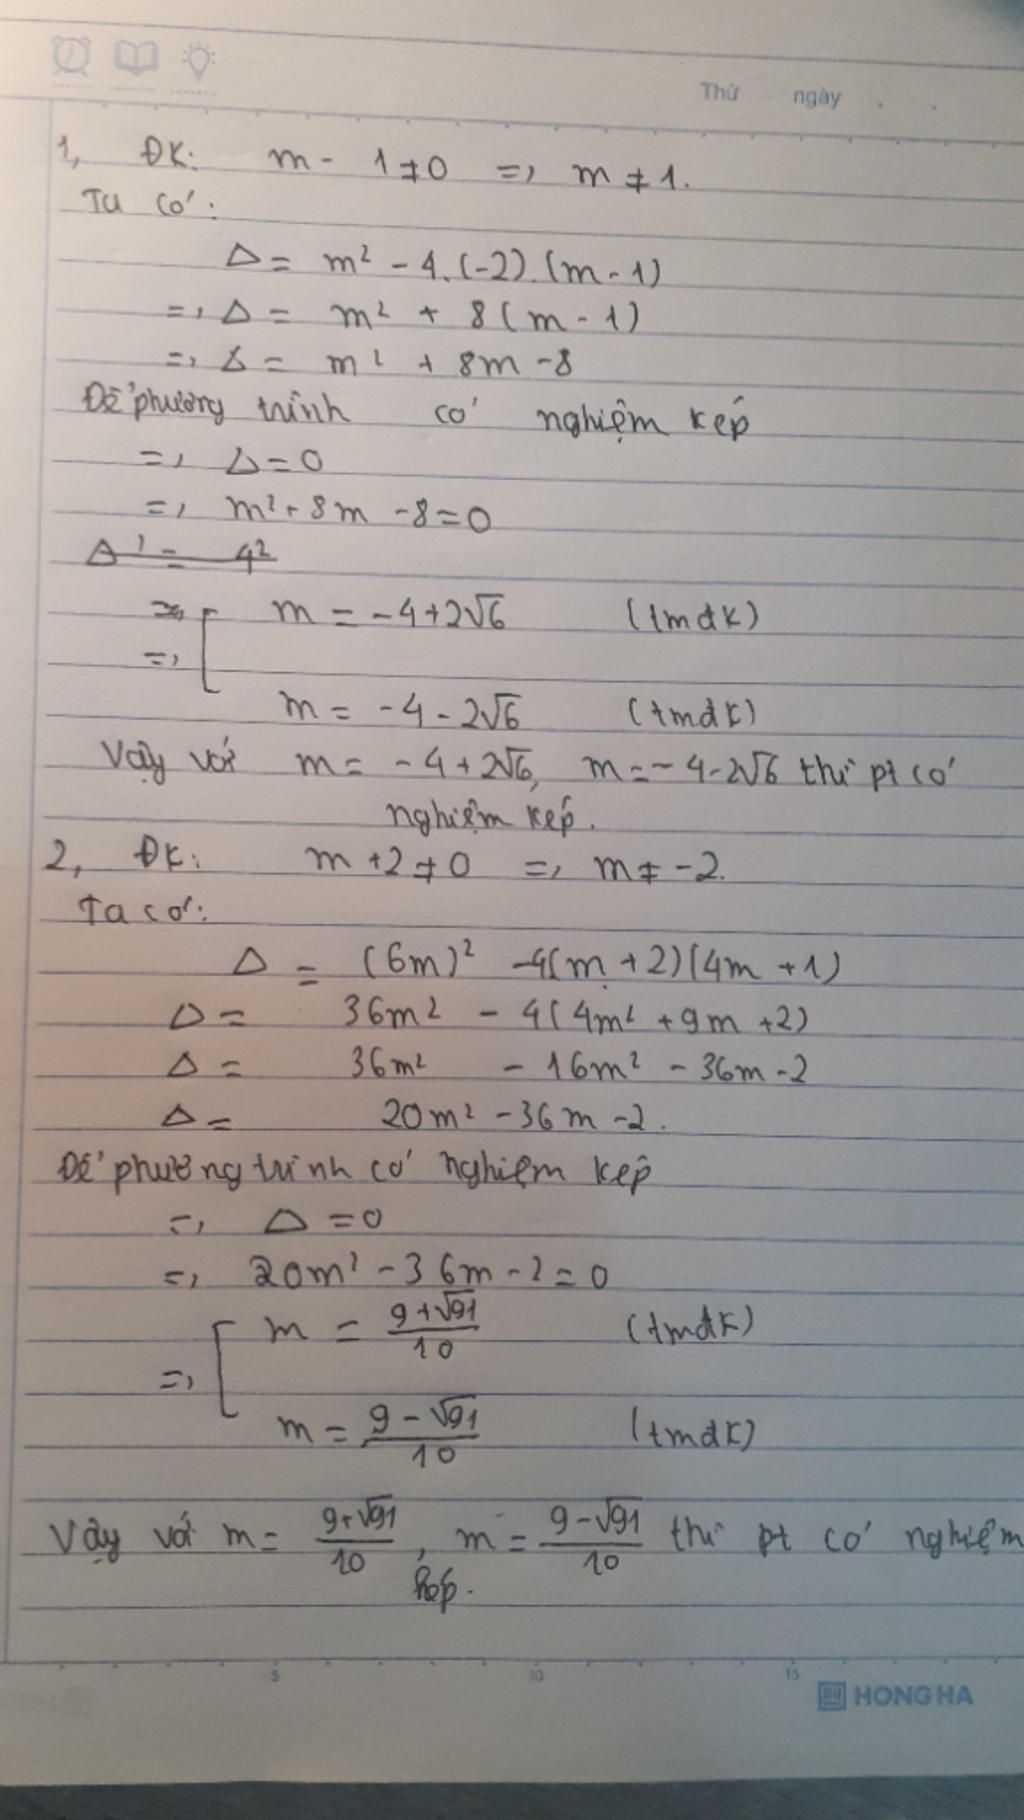 Thứ ngày . .
1, ĐK: m - 1 ≠ 0 => m ≠ 1.
Ta có:
Δ = m² - 4.(-2).(m - 1)
=> Δ = m² + 8(m - 1)
=> Δ = m² + 8m - 8
Để phương trình có nghiệm kép
=> Δ = 0
=> m² + 8m - 8 = 0
Δ' = 4²
=> m = -4 + 2√6 (tmđk)
=>
m = -4 - 2√6 (tmđk)
Vậy với m = -4 + 2√6, m = -4 - 2√6 thì pt có
nghiệm kép.
2, ĐK: m + 2 ≠ 0 => m ≠ -2.
Ta có:
Δ = (6m)² - 4(m + 2)(4m + 1)
Δ = 36m² - 4(4m² + 9m + 2)
Δ = 36m² - 16m² - 36m - 2
Δ = 20m² - 36m - 2.
Để phương trình có nghiệm kép
=> Δ = 0
=> 20m² - 36m - 2 = 0
m = (9 + √91)/10 (tmđk)
=>
m = (9 - √91)/10 (tmđk)
Vậy với m = (9 + √91)/10, m = (9 - √91)/10 thì pt có nghiệm
kép.
5 10 15
HONG HA